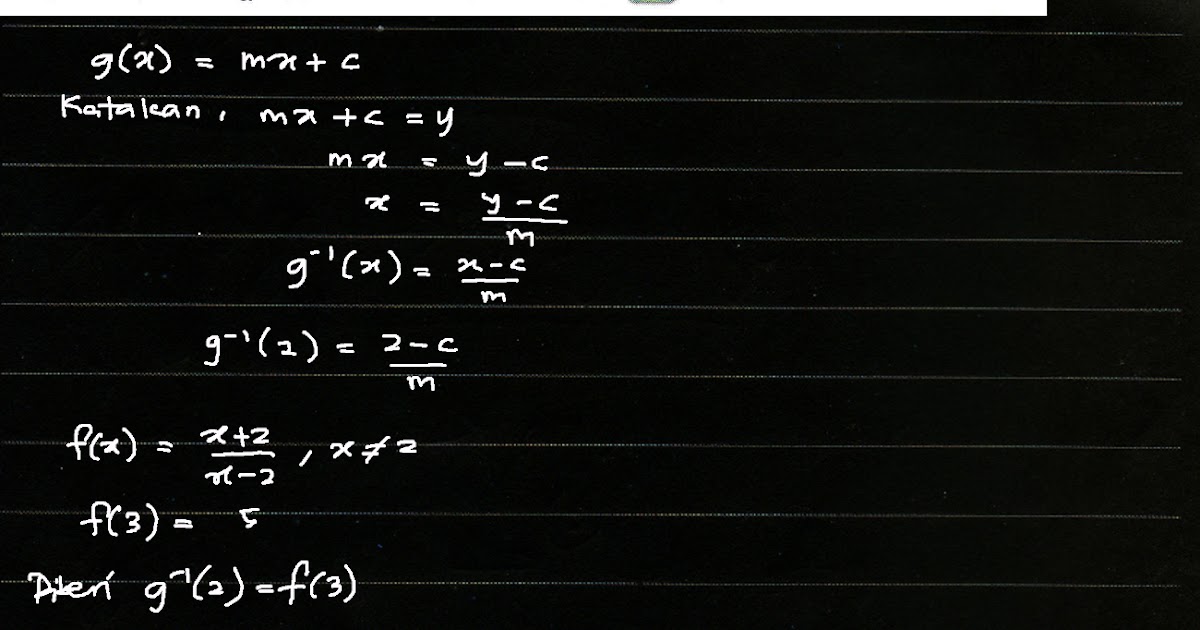 g(x) = mx + c
Katakan, mx + c = y
mx = y - c
x = \frac{y - c}{m}
g⁻¹(x) = \frac{x - c}{m}
g⁻¹(2) = \frac{2 - c}{m}
f(x) = \frac{x+2}{x-2}, x ≠ 2
f(3) = 5
Diberi g⁻¹(2) = f(3)